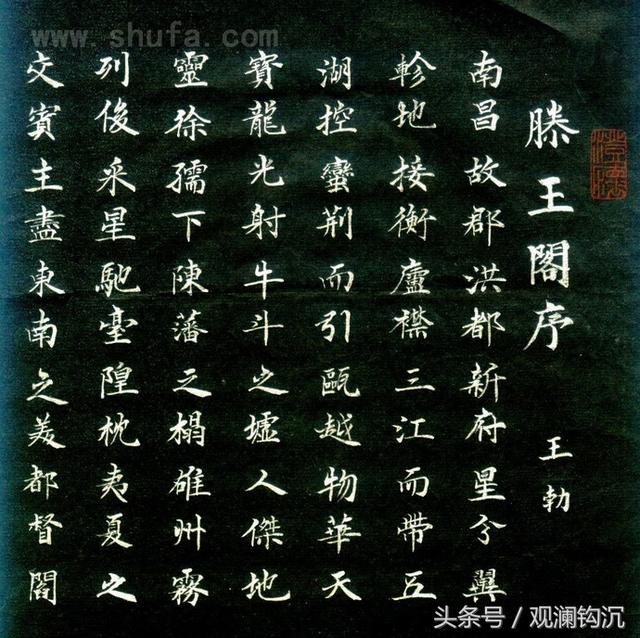 www.shufa.com
滕王閣序
王勃
南昌故郡洪都新府星分翼
軫地接衡廬襟三江而帶五
湖控蠻荆而引甌越物華天
寶龍光射牛斗之墟人傑地
靈徐孺下陳藩之榻雄州霧
列俊采星馳臺隍枕夷夏之
交賓主盡東南之美都督閻
头条号 / 观澜钩沉